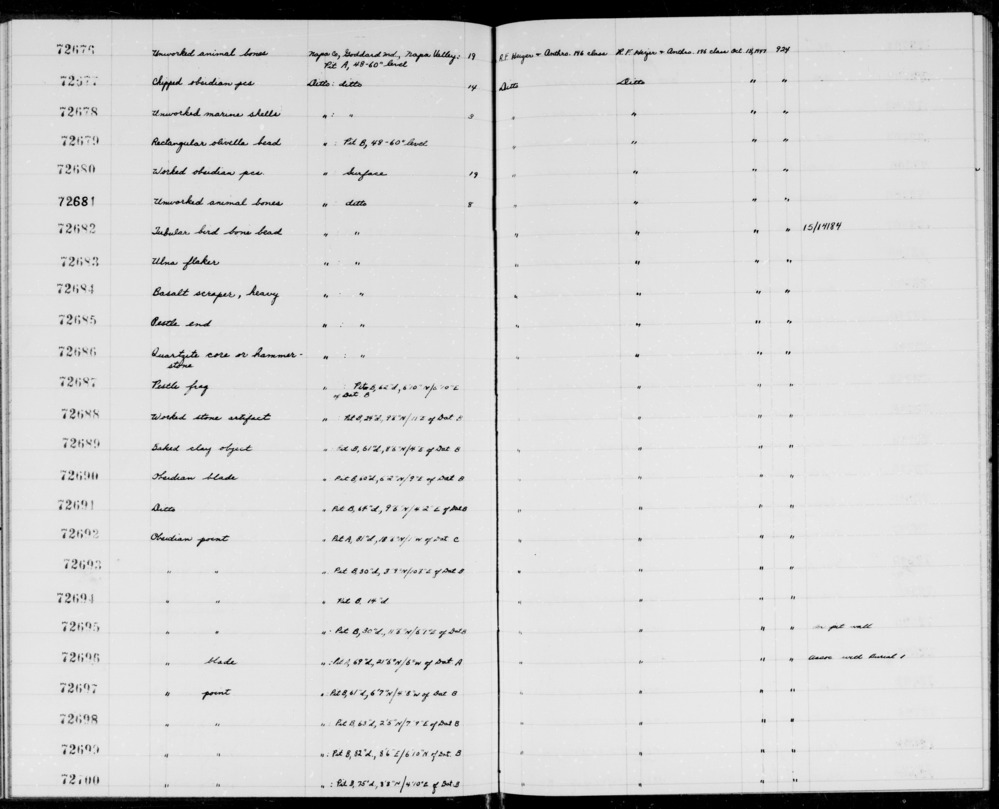 72676 Unworked animal bones Napa Co, Goddard md., Napa Valley: 19 R.F. Heizer + Anthro. 196 class R.F. Heizer + Anthro. 196 class Oct 18, 1947 924
Pit A, 48-60" level
72677 Chipped obsidian pcs Ditto: ditto 14 Ditto Ditto " "
72678 Unworked marine shells " : " 3 " " " "
72679 Rectangular olivella bead " : Pit B, 48-60" level " " " "
72680 Worked obsidian pcs " Surface 19 " " " "
72681 Unworked animal bones " ditto 8 " " " "
72682 Tubular bird bone bead " : " " " " " 15/14184
72683 Ulna flaker " : " " " " "
72684 Basalt scraper, heavy " : " " " " "
72685 Pestle end " : " " " " "
72686 Quartzite core or hammer- " : " " " " "
stone
72687 Pestle frag " : Pit B, 62"d, 6'10"N/ E " " " "
of Dat B
72688 Worked stone artifact " Pit B, of Dat B " " " "
72689 Baked clay object " : Pit B, 51"d, of Dat B " " " "
72690 Obsidian blade " Pit B, 60"d, of Dat B " " " "
72691 Ditto " Pit B, 64"d, of Dat B " " " "
72692 Obsidian point " Pit A, of Dat C " " " "
72693 " " " Pit B, 30"d, of Dat B " " " "
72694 " " " Pit B, 14"d " " " "
72695 " " " : Pit B, 30"d, of Dat B " " " " in pit wall
72696 " blade " : 69"d, 21'6"N/ W of Dat A " " " " assoc with burial 1
72697 " point " : Pit B, 61"d, 6'7"N/ W of Dat B " " " "
72698 " " " : Pit B, 63"d, E of Dat B " " " "
72699 " " " : Pit B, 32"d, 8'6"E/6'10"N of Dat. B " " " "
72700 " " " : Pit B, 75"d, 4'10"E of Dat B " " " "